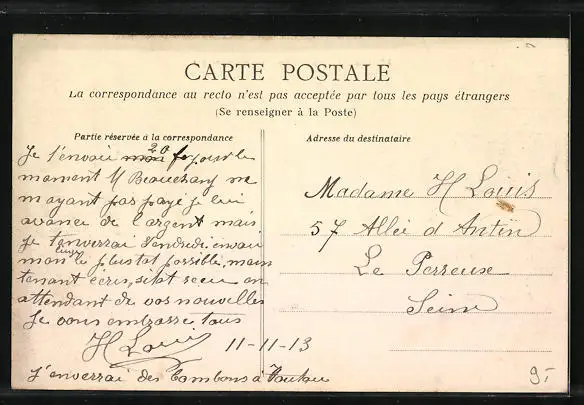 CARTE POSTALE
La correspondance au recto n'est pas acceptée par tous les pays étrangers
(Se renseigner à la Poste)
Partie réservée à la correspondance
Adresse du destinataire
Je t'envoie 20 f pour le
moment M Beauchamp ne
m ayant pas payé je lui
avance de l'argent mais
je t'enverrai Vendredi envoie
mon livre le plus tot possible, main
tenant écris sitot recu en
attendant de vos nouvelles
Je vous embrasse tous
H Louis 11-11-13
J'enverrai des bonbons à
Madame H Louis
57 Allée d'Antin
Le Perreux
Seine
9-